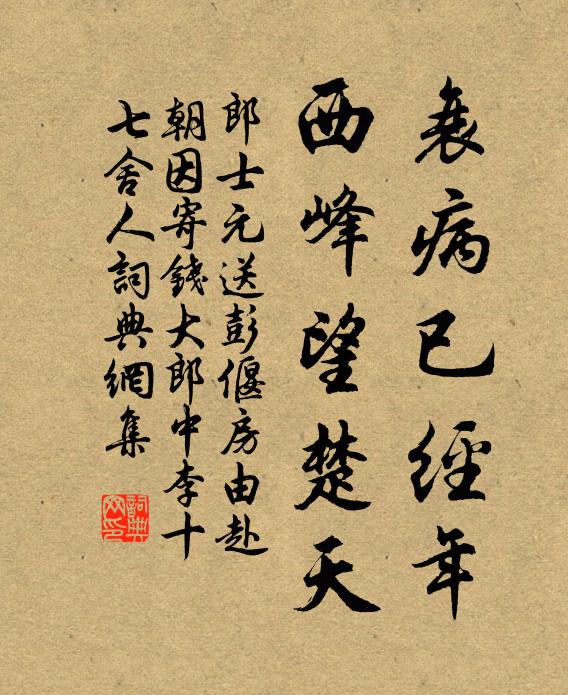 衰病已經年
西峰望楚天
郎士元送彭偃房由赴
朝因寄錢大郎中李十
七舍人詞典網集
詞典網印